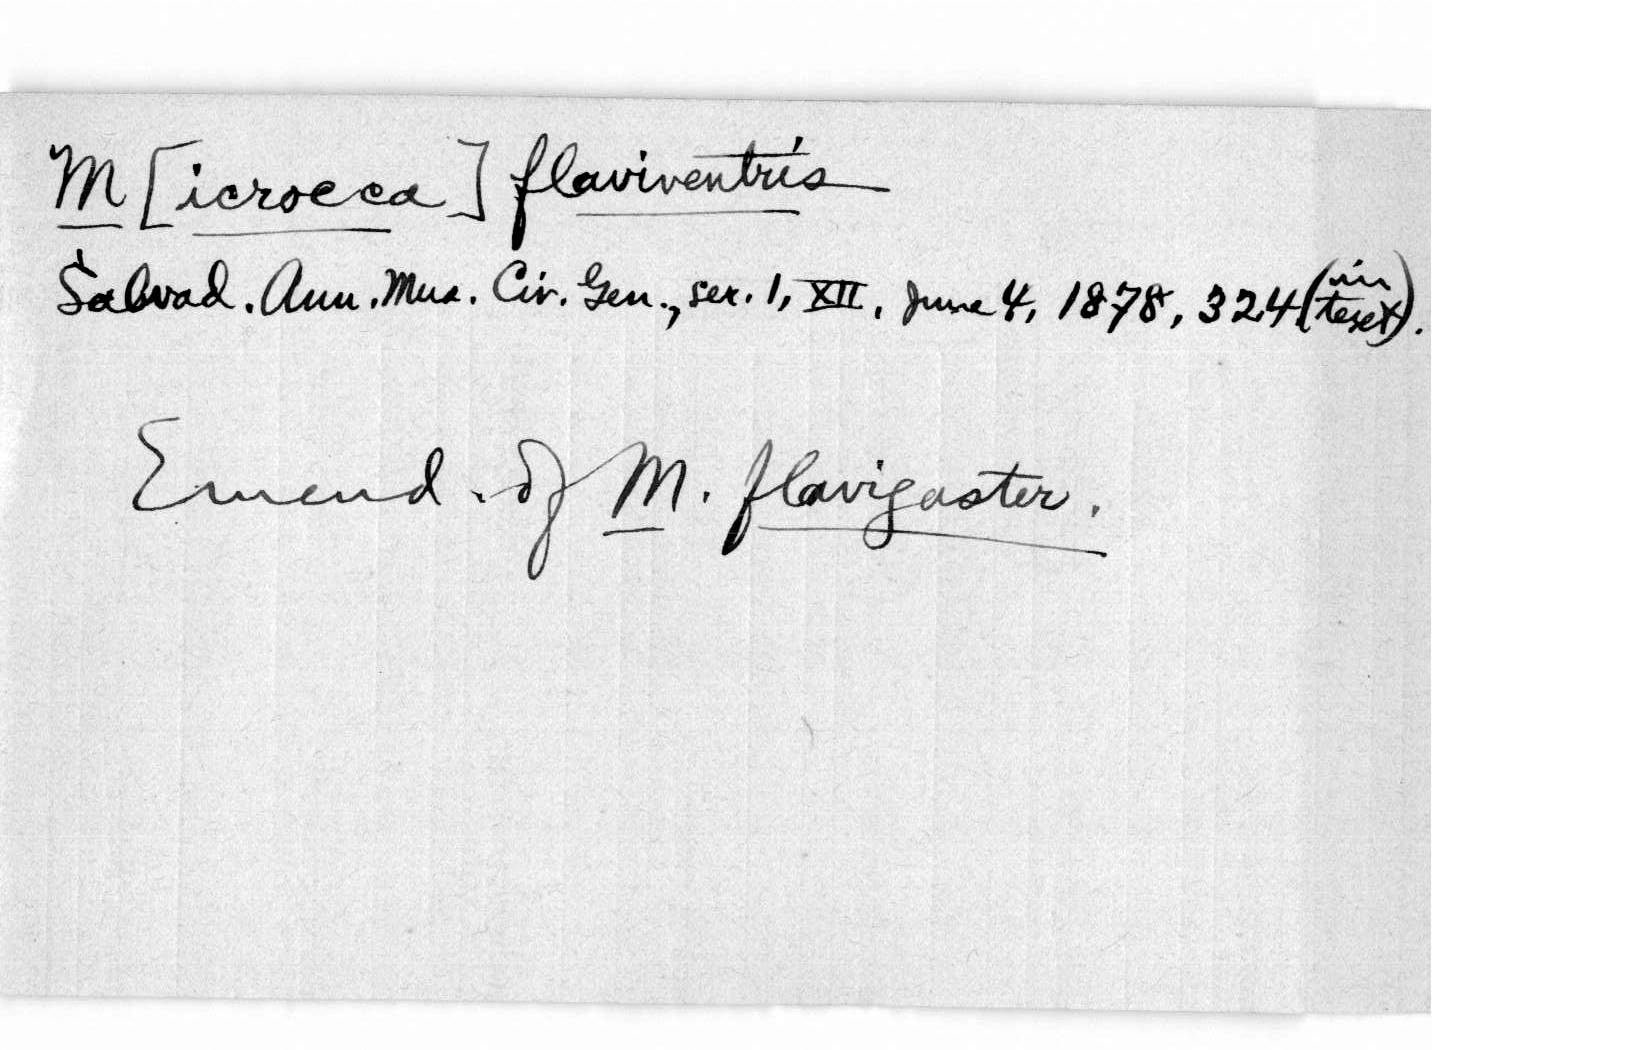 M[icroeca] flaviventris
Salvad. Ann. Mus. Civ. Gen., ser. 1, XII, June 4, 1878, 324 (in text).
Emend. of M. flavigaster.